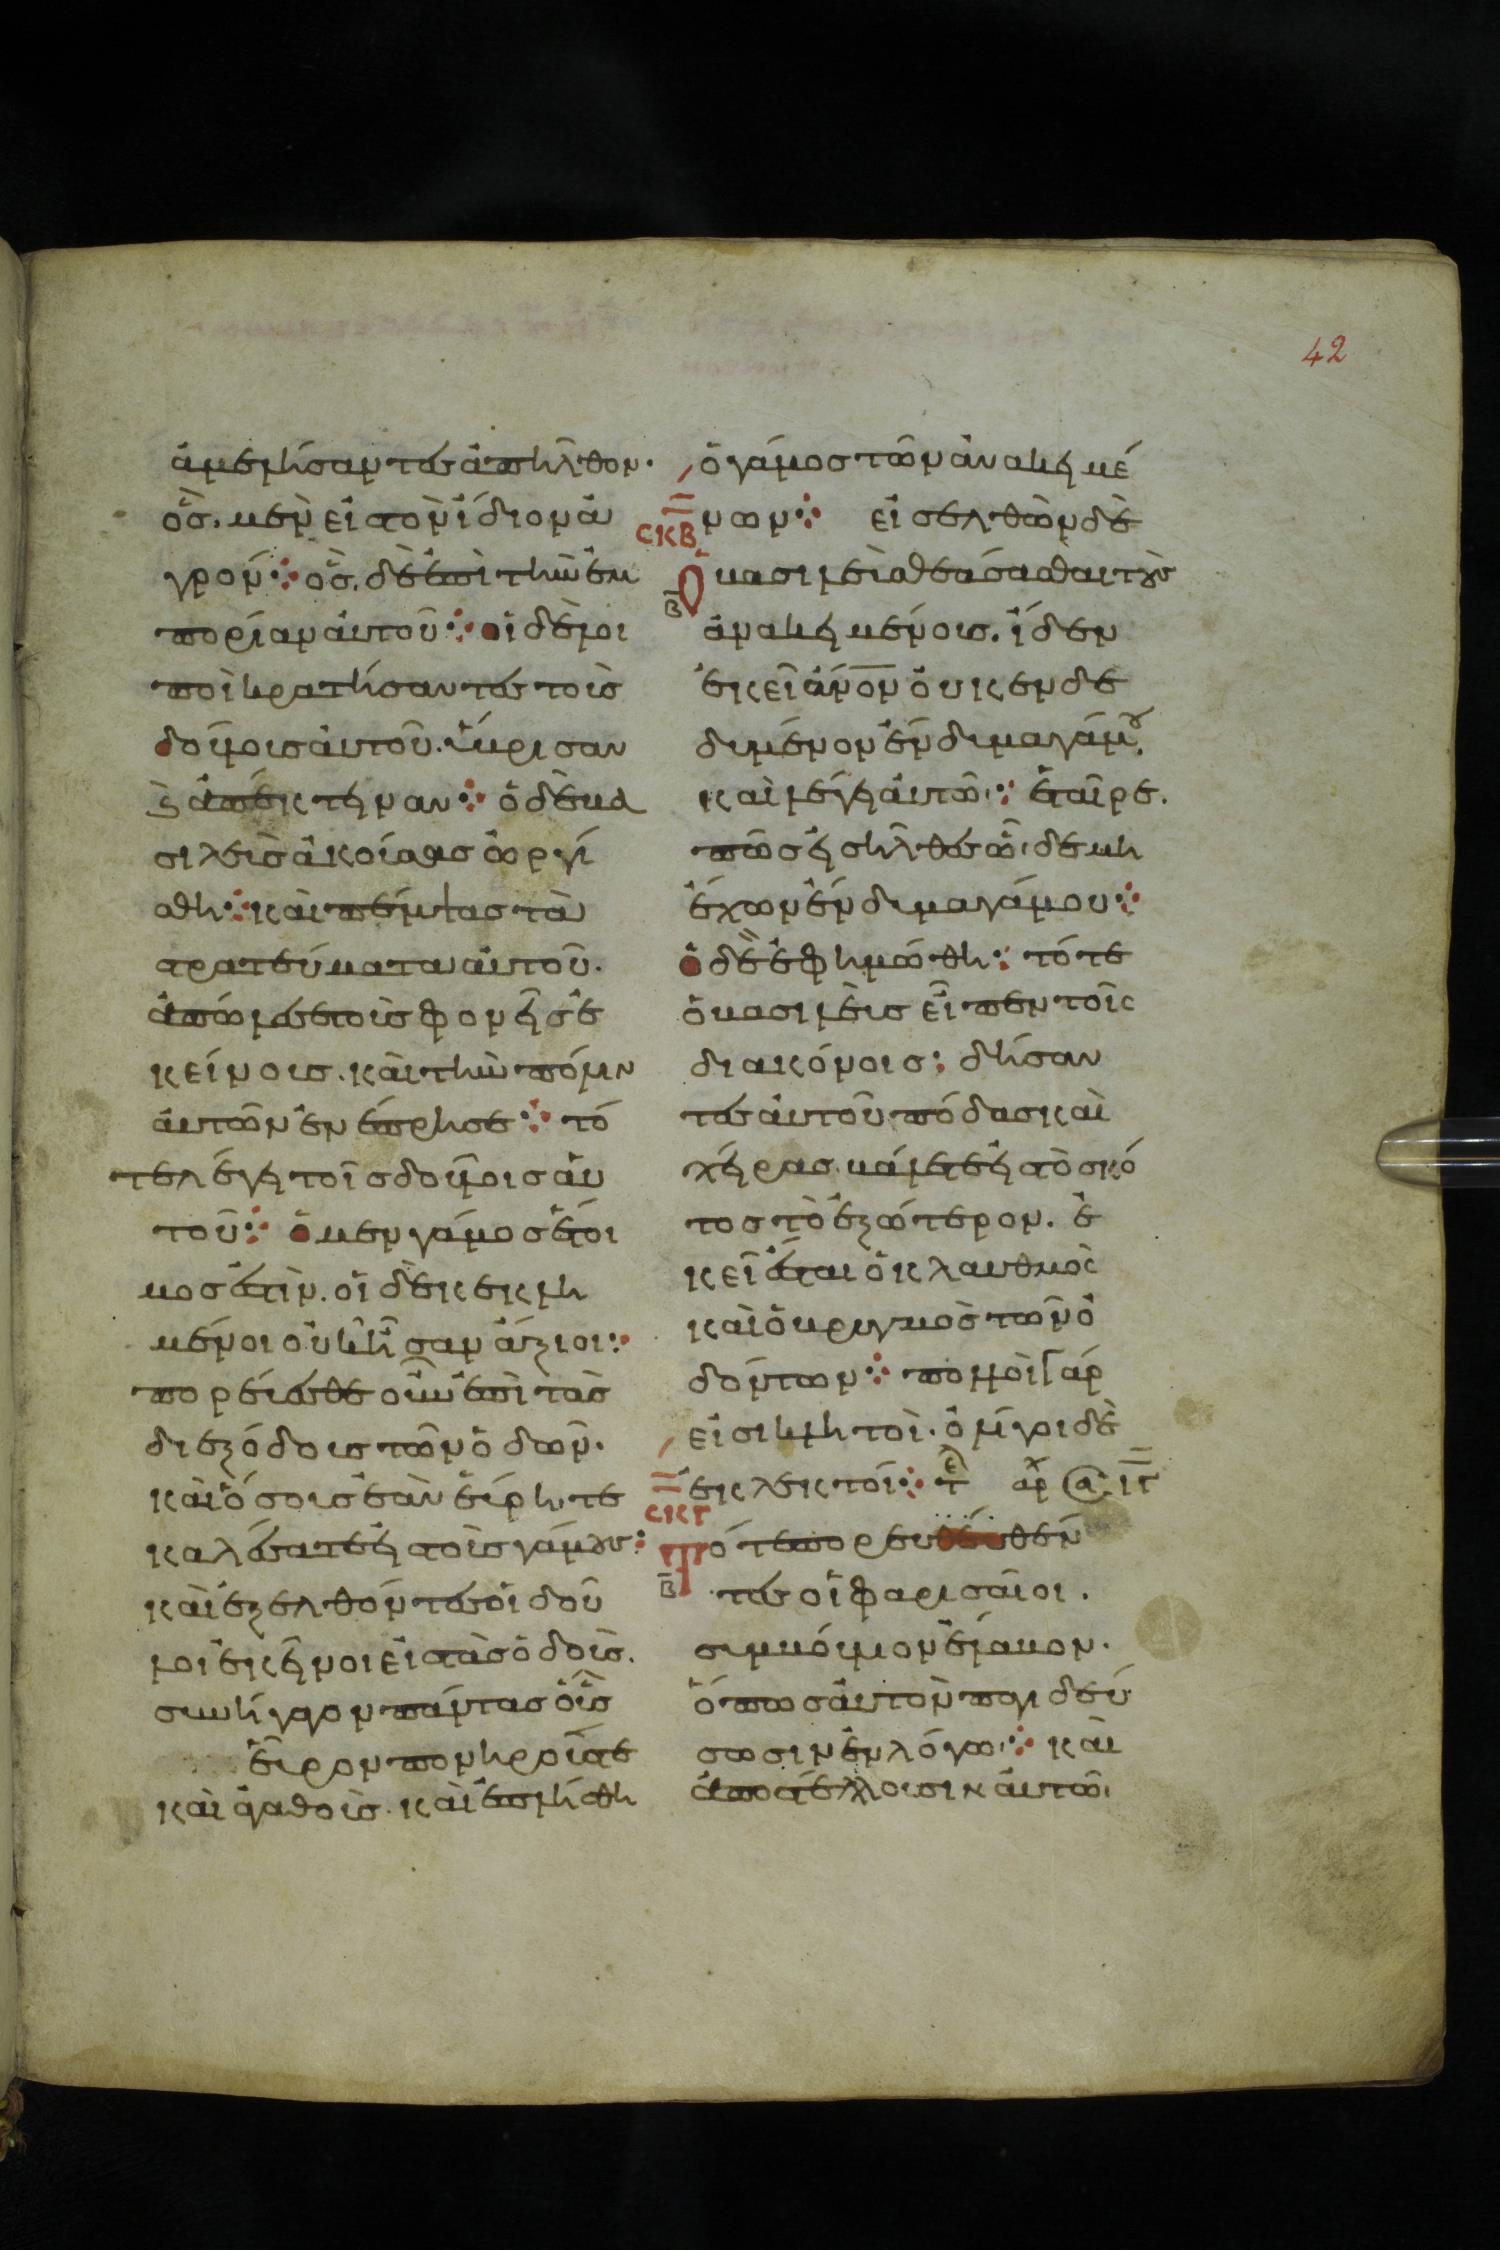 42
ἀμελήσαντες ἀπῆλθον·
ὃς μὲν εἰς τὸν ἴδιον ἀ
γρόν· ὃς δὲ ἐπὶ τὴν ἐμ
πορίαν αὐτοῦ· οἱ δὲ λοι
ποὶ κρατήσαντες τοὺς
δούλους αὐτοῦ. ὕβρισαν
καὶ ἀπέκτειναν· ὁ δὲ βα
σιλεὺς ἀκούσας ὠργί
σθη· καὶ πέμψας τὰ
στρατεύματα αὐτοῦ.
ἀπώλεσε τοὺς φονεῖς ἐ
κείνους. καὶ τὴν πόλιν
αὐτῶν ἐνέπρησε· τό
τε λέγει τοῖς δούλοις αὐ
τοῦ· ὁ μεν γάμος ἕτοι
μος ἐστὶν. οἱ δὲ κεκλη
μένοι οὐκ ἦσαν ἄξιοι·
πορεύεσθε οὖν ἐπὶ τὰς
διεξόδους τῶν ὁδῶν.
καὶ ὅσους ἐὰν εὕρητε
καλέσατε εἰς τοὺς γάμους·
καὶ ἐξελθόντες οἱ δοῦ
λοι ἐκεῖνοι εἰς τὰς ὁδοὺς.
συνήγαγον πάντας οὓς
εὗρον πονηρούς τε
καὶ ἀγαθοὺς. καὶ ἐπλήσθη
ὁ γάμος τῶν ἀνακειμέ
νων· εἰσελθὼν δὲ
σκβ
ὁ βασιλεὺς θεάσασθαι τοὺς
β
ἀνακειμένους. ἴδεν
ἐκεῖ ἄνον οὐκ ἐνδε
δυμένον ἔνδυμα γάμου.
καὶ λέγει αὐτῶ· ἑταῖρε.
πῶς εἰσῆλθες ὧδε μὴ
ἔχων ἔνδυμα γάμου·
ὁ δὲ ἐφημώθη· τότε
ὁ βασιλεὺς εἶπεν τοῖς
διακόνοις· δήσαν
τες αὐτοῦ πόδας καὶ
χεῖρας. βάλετε εἰς τὸ σκό
τος τὸ ἐξώτερον. ἐ
κεῖ ἔσται ὁ κλαυθμὸς
καὶ ὁ βρυγμὸς τῶν ὀ
δόντων· πολλοὶ γάρ
εἰσι κλητοὶ. ὀλίγοι δὲ
ἐκλεκτοί· τε αρχ
σκγ
Τότε πορευθέντες
β
οἱ φαρισαῖοι.
συμβούλιον ἔλαβον.
ὅπως αὐτὸν παγιδεύ
σωσιν ἐν λόγω· καὶ
ἀποστέλλουσιν αὐτῶ